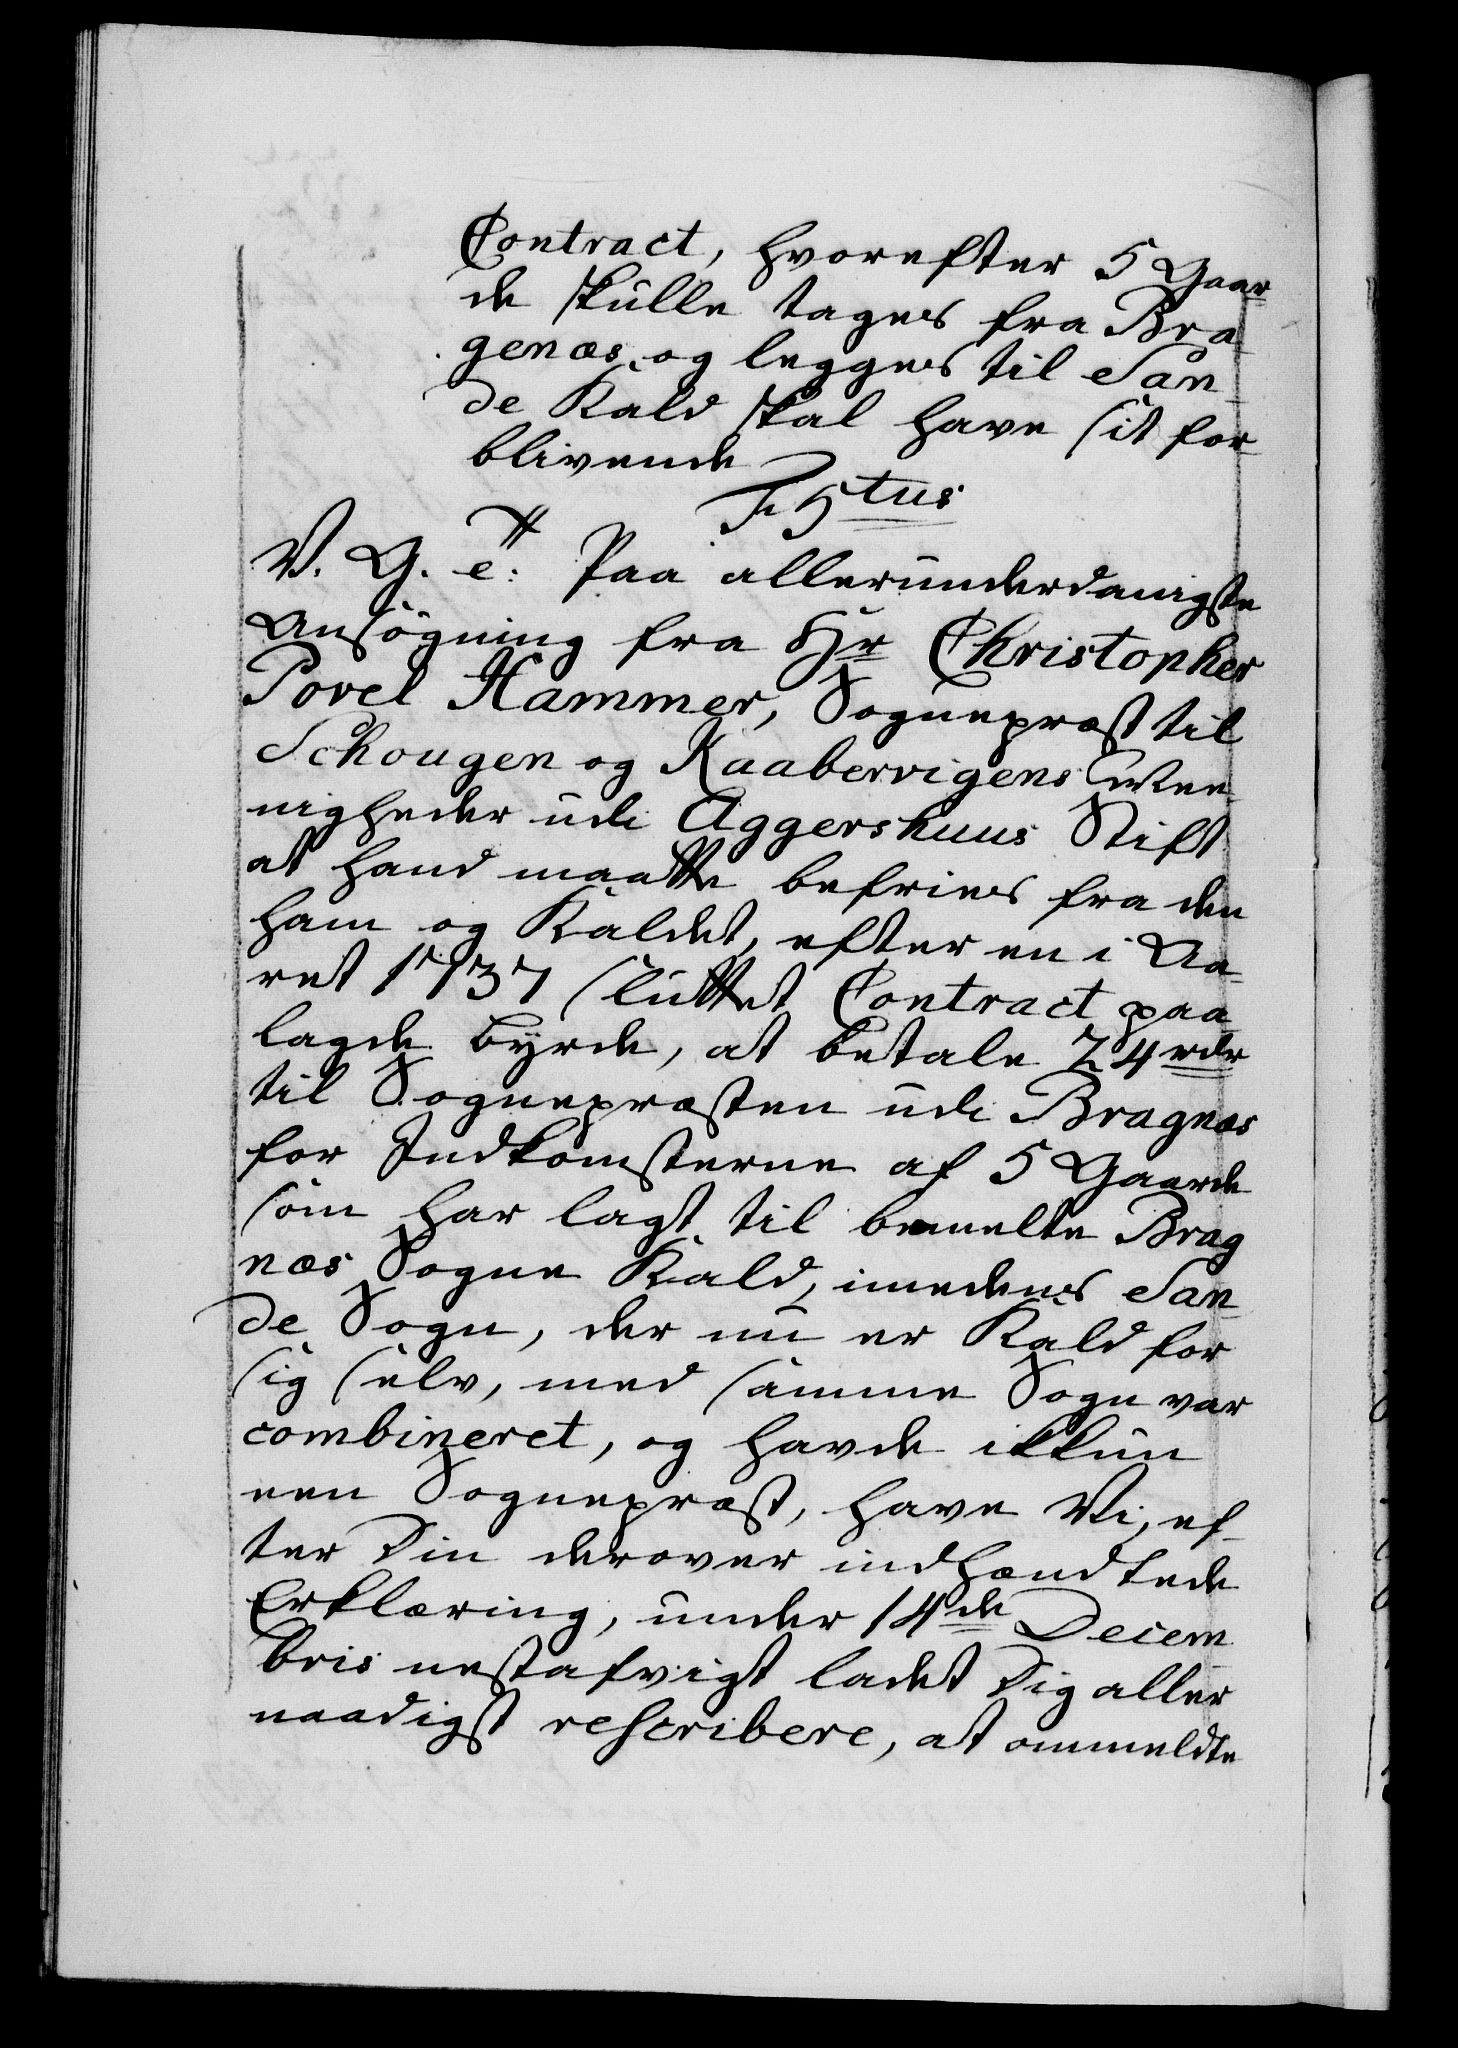 Contract, hvorefter 5 Gaar-
de skulle tages fra Bra-
genæs, og legges til San-
de Kald skal have sit for-
blivende
F. 5tus
V. G. e: Paa allerunderdanigste
Ansøgning fra Hr Christopher
Povel Hammer, Sognepræst til
Schougen og Kaabervigens Mee-
nigheder udi Aggershuus Stift
at hand maatte befries fra den
ham og Kaldet, efter en i Aa-
ret 1737 sluttet Contract paa-
lagde Byrde, at betale 24 rdr
til Sognepræsten udi Bragnæs
for Indkomsterne af 5 Gaarde
som har lagt til bemelte Brag
næs Sogne Kald, imedens San-
de Sogn, der nu er Kald for
sig selv, med samme Sogn var
combineret, og havde ikkun
een Sognepræst, have Vi, ef-
ter Din derover indhændtede
Erklæring, under 14de Decem
bris nestafvigt ladet Dig aller
naadigst rescribere, at ommeldte